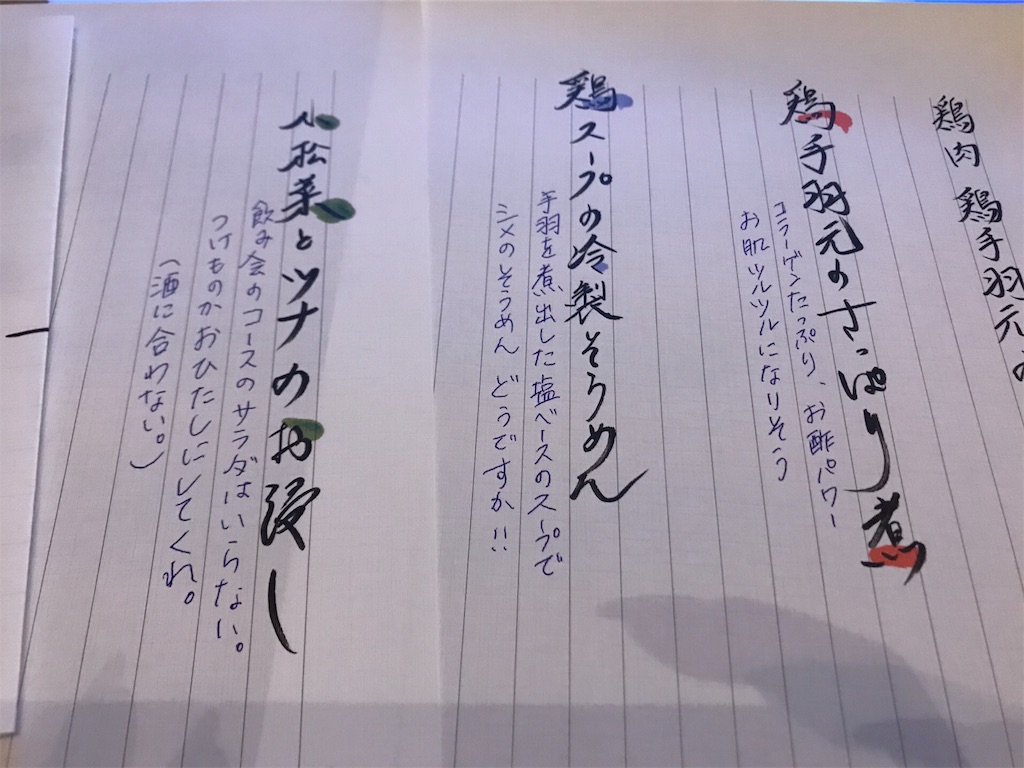 鶏肉 鶏手羽元の
鶏手羽元のさっぱり煮
コラーゲンたっぷり、お酢パワー
お肌ツルツルになりそう
鶏スープの冷製そうめん
手羽を煮出した塩ベースのスープで
シメのそうめん どうですか!!
小松菜とツナのお浸し
飲み会のコースのサラダはいらない。
つけものかおひたしにしてくれ。
(酒に合わない。)